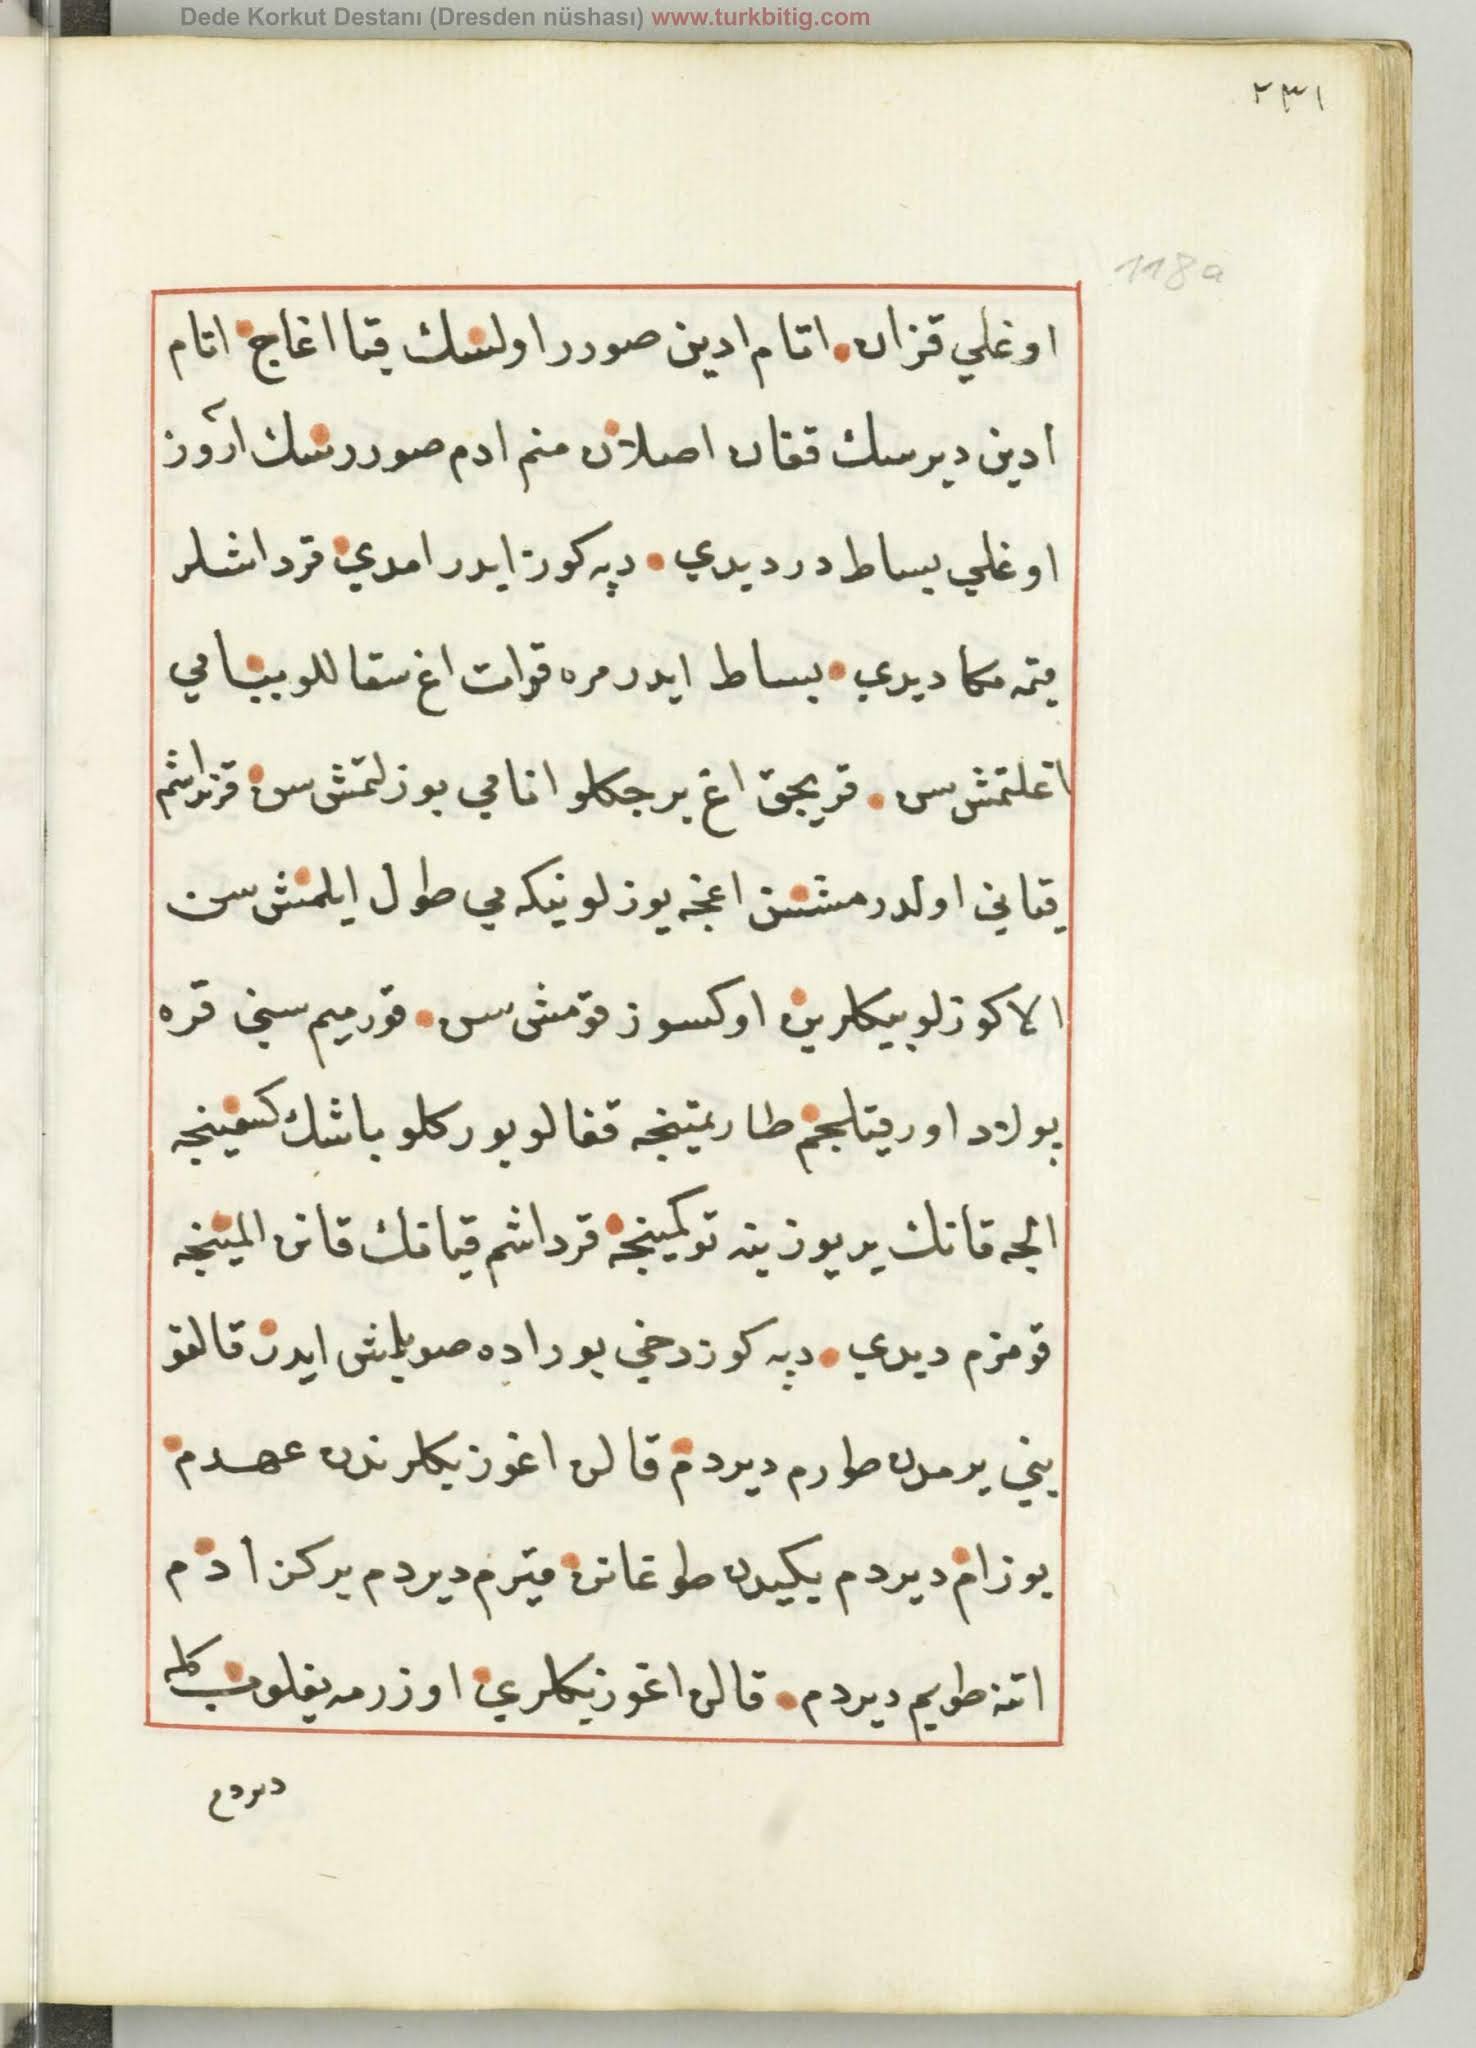 Dede Korkut Destanı (Dresden nüshası) www.turkbitig.com
٢٣١
118a
اوغلي قزان اتام ادين صورر اولسك قبا اغاج اتام
ادين ديرسك قغان اصلان منم ادم صوررسك آروز
اوغلي بساط در ديدي دپه كوز ايدر امدي قرداشلر
يتمه مكا ديدي بساط ايدر مره قوات اغ سقاللو بابامي
اغلتمش سن قريجق اغ برجكلو انامي بوزلتمش سن قرنداشم
قياني اولدرمشسن اغجه يوزلو ينكه مي طول ايلمش سن
الا كوزلو ببكلرين اوكسوز قومش سن قورميم سني قره
پولاد اوز قيلجم طارتمينجه قفالو بوركلو باشك كسمينجه
الجه قانك ير يوزينه توكمينجه قرداشم قيانك قانن المينجه
قومزم ديدي دپه كوز دخي بوراده صويلمش ايدر قالقو
بني يرمدن طورم ديردم قالن اغوز بكلرندن عهدم
بوزام ديردم يكيدن طوغانن قيرم ديردم بر كز ادم
اتنه طويم ديردم قالن اغوز بكلري اوزرمه يغلوب كله
ديردم